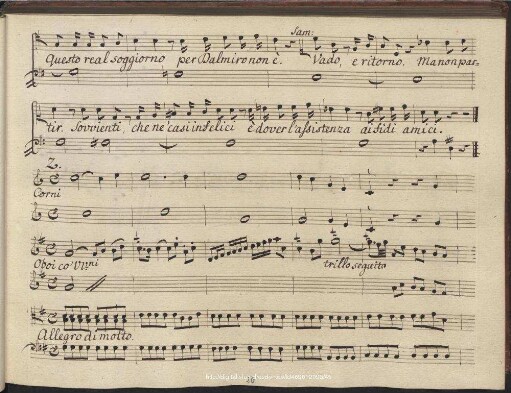 Sam:
Questo real soggiorno per Dalmiro non è. Vado, e ritorno. Ma non par-
tir. Sovvienti, che ne' casi infelici è dover l'assistenza ai fidi amici.
2.
Corni
Oboi co' V.ni trillo seguito
Allegro di molto.